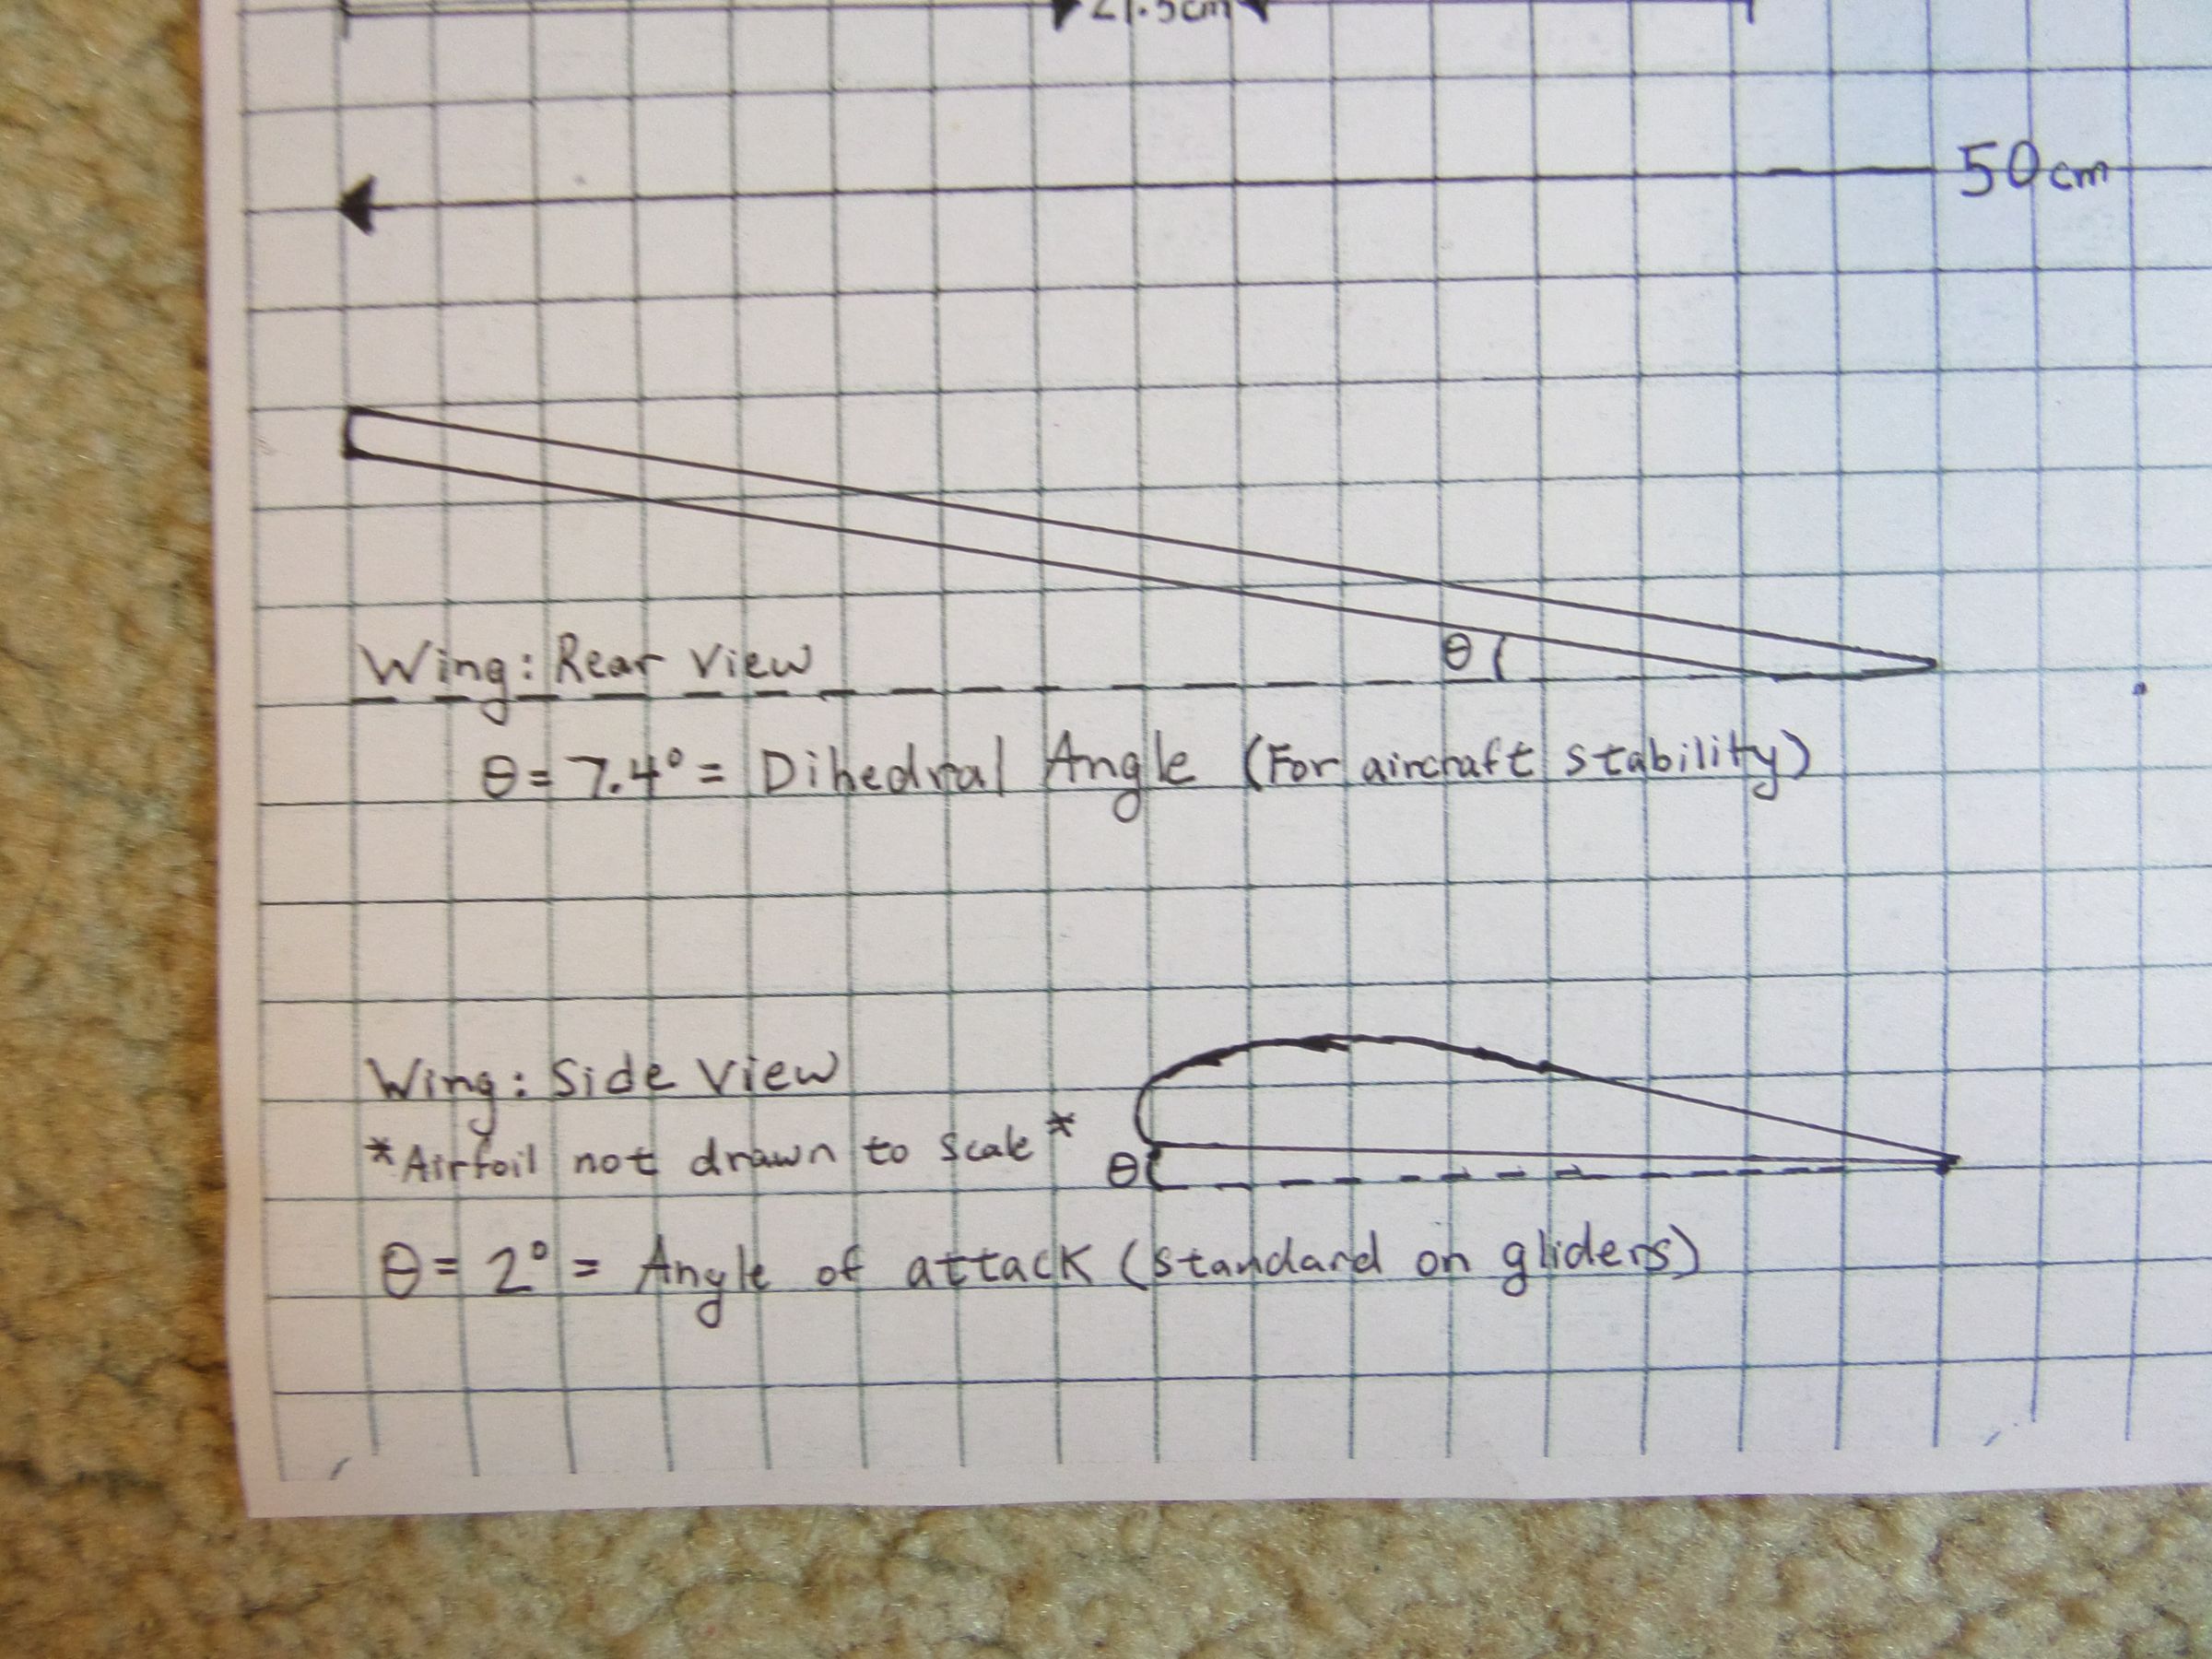 21.5cm
50cm
θ
Wing: Rear View
θ = 7.4° = Dihedral Angle (For aircraft stability)
Wing: Side View
*Airfoil not drawn to scale*
θ
θ = 2° = Angle of attack (standard on gliders)